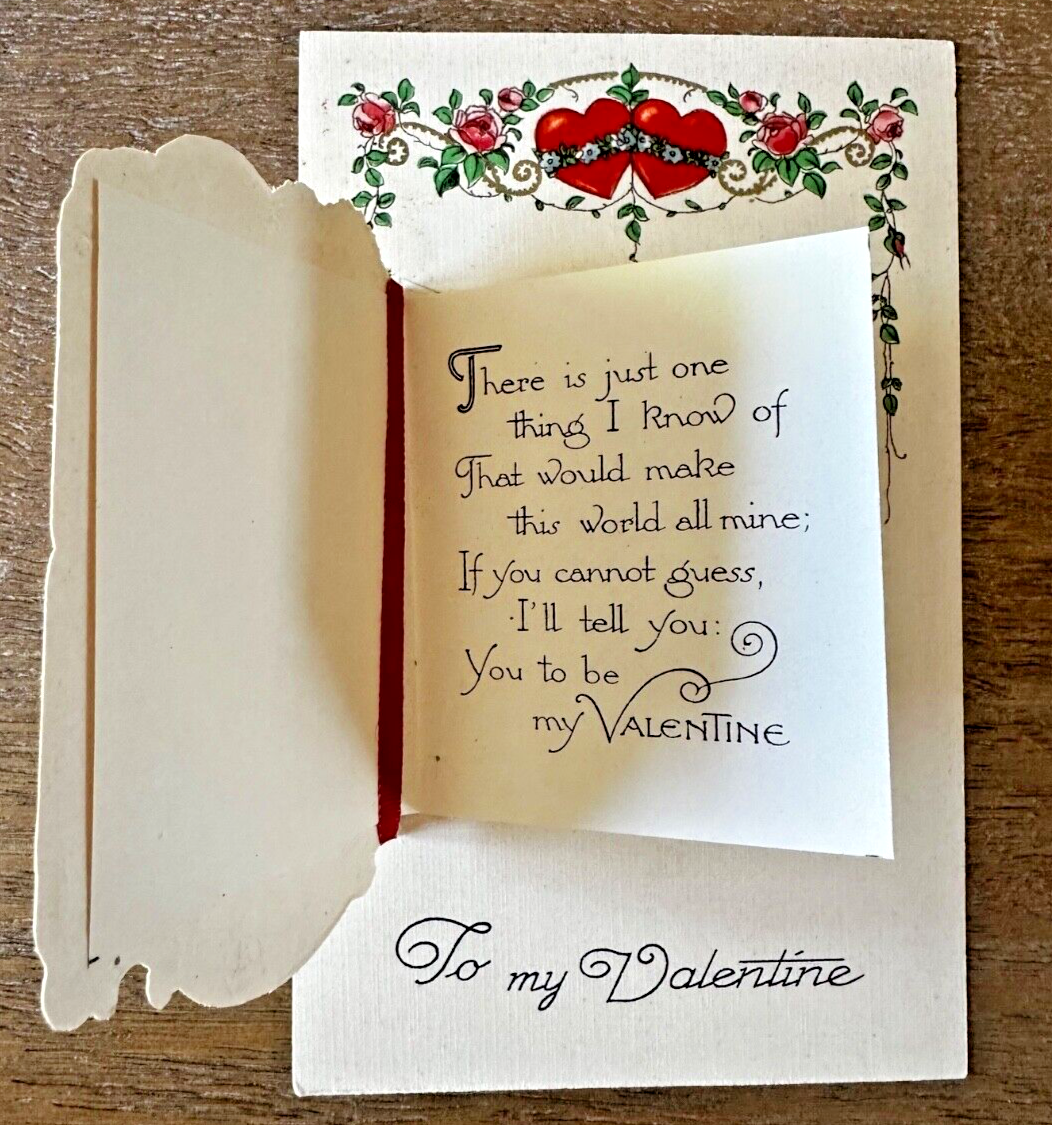 There is just one
thing I know of
That would make
this world all mine;
If you cannot guess,
I'll tell you:
You to be
my VALENTINE
To my Valentine